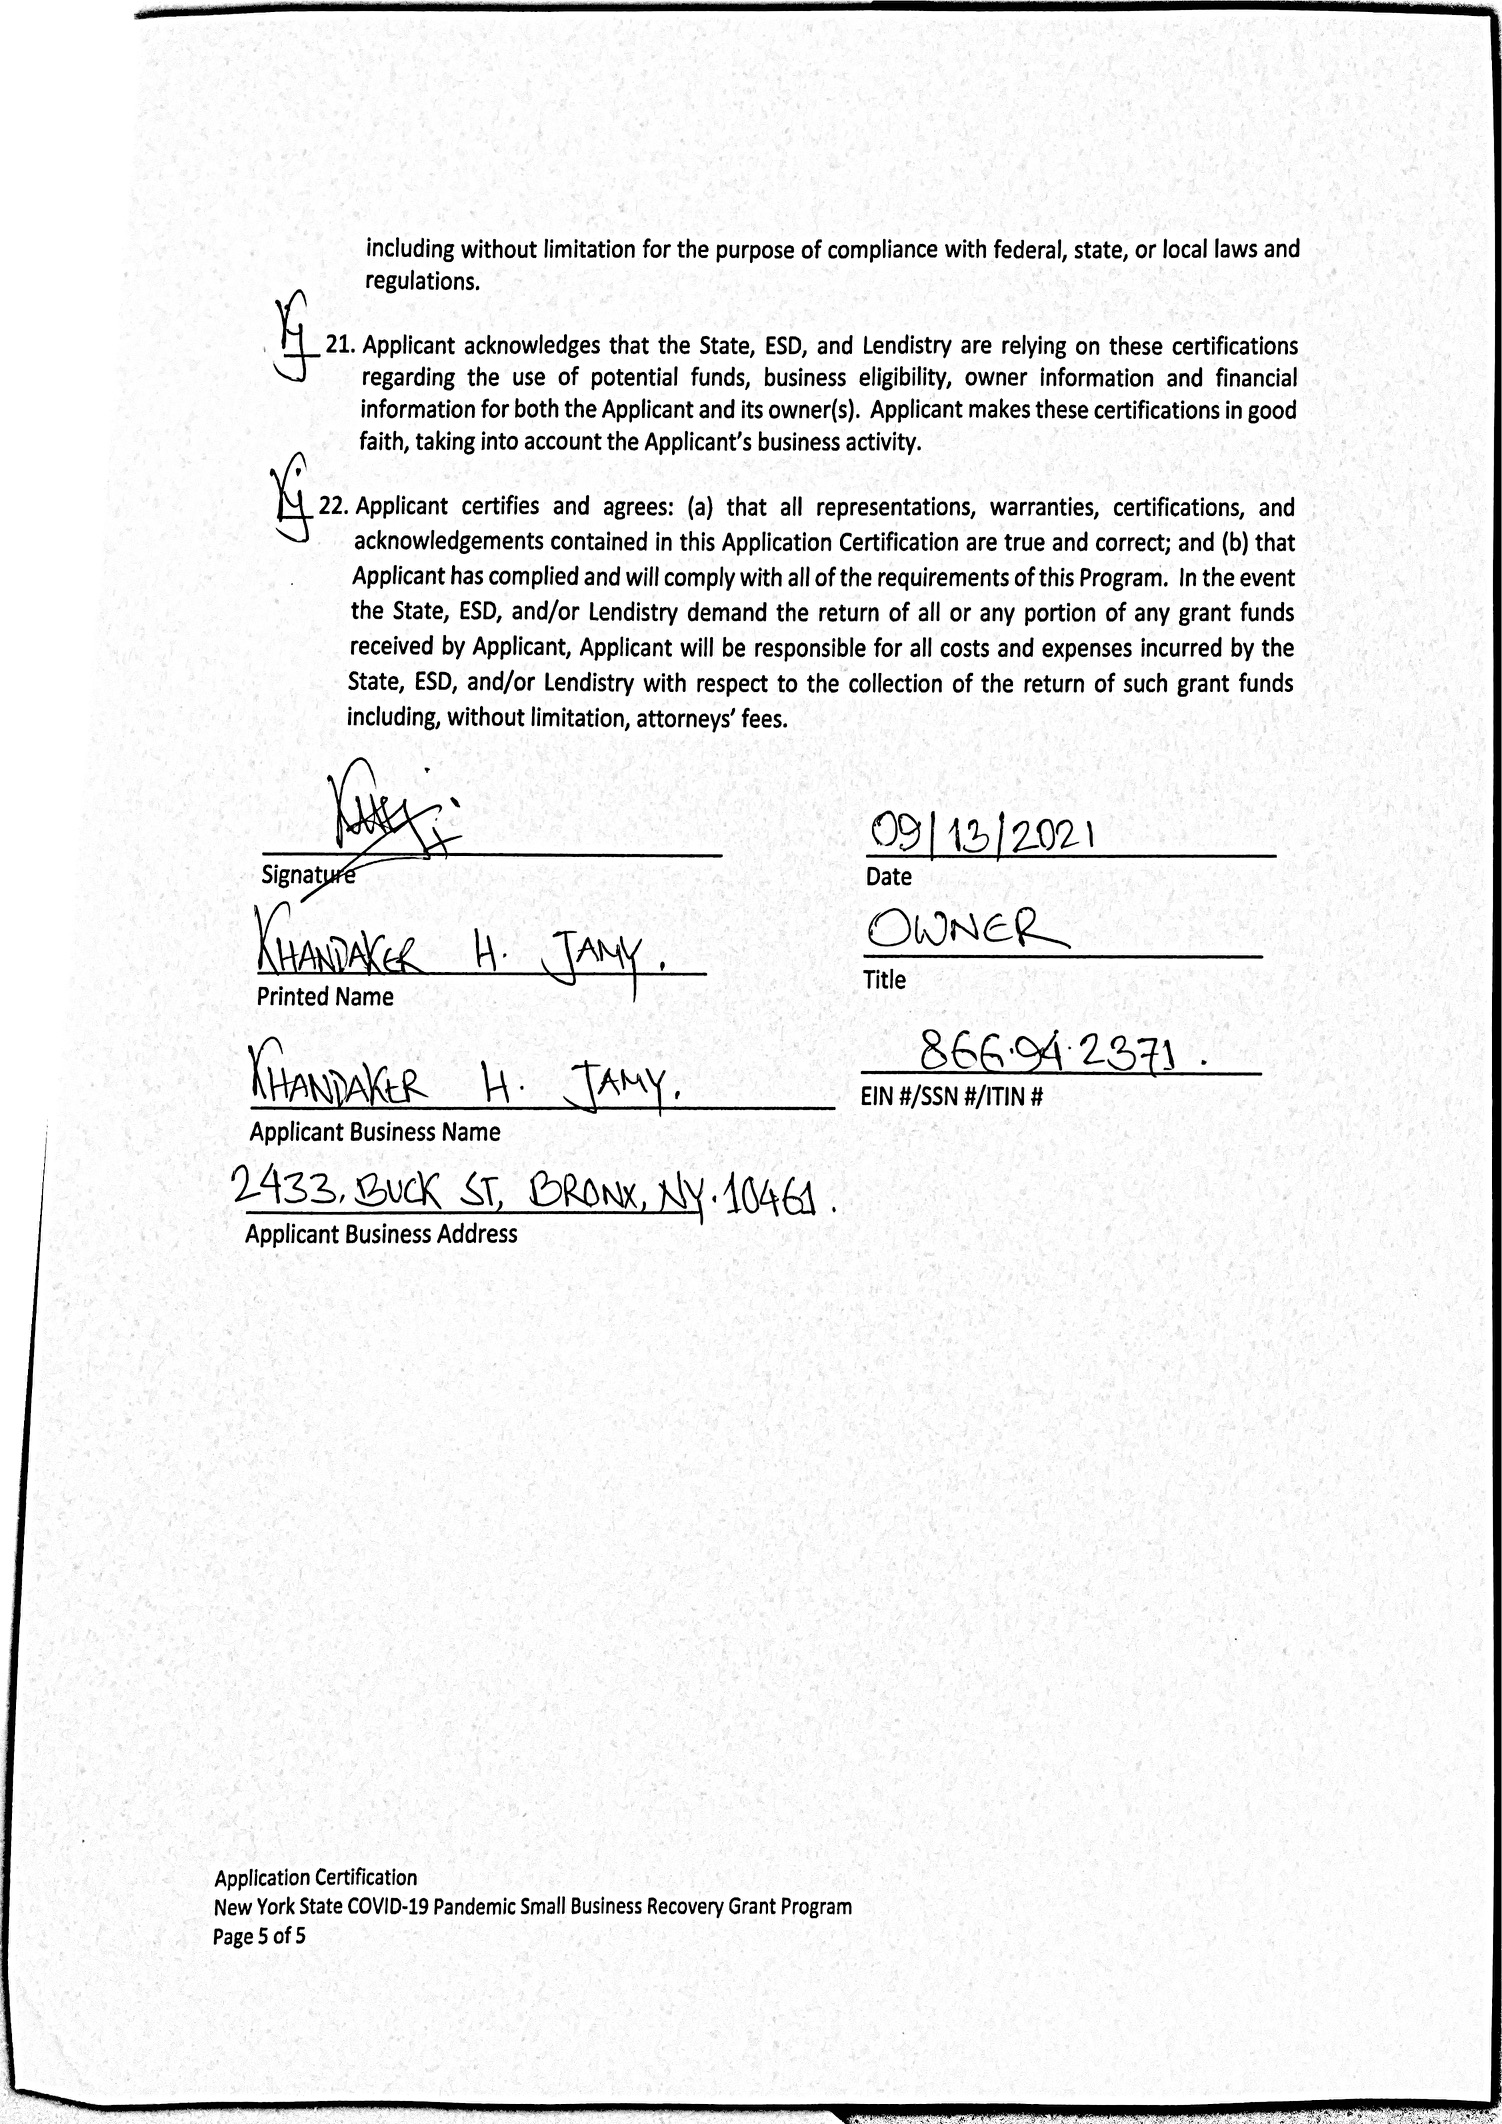 including without limitation for the purpose of compliance with federal, state, or local laws and
regulations.
KJ 21. Applicant acknowledges that the State, ESD, and Lendistry are relying on these certifications
regarding the use of potential funds, business eligibility, owner information and financial
information for both the Applicant and its owner(s). Applicant makes these certifications in good
faith, taking into account the Applicant's business activity.
KJ 22. Applicant certifies and agrees: (a) that all representations, warranties, certifications, and
acknowledgements contained in this Application Certification are true and correct; and (b) that
Applicant has complied and will comply with all of the requirements of this Program. In the event
the State, ESD, and/or Lendistry demand the return of all or any portion of any grant funds
received by Applicant, Applicant will be responsible for all costs and expenses incurred by the
State, ESD, and/or Lendistry with respect to the collection of the return of such grant funds
including, without limitation, attorneys' fees.
09/13/2021
Signature Date
KHANDAKER H. JAMY. OWNER
Printed Name Title
KHANDAKER H. JAMY. 866.94.2371.
Applicant Business Name EIN #/SSN #/ITIN #
2433, BUCK ST, BRONX, NY. 10461.
Applicant Business Address
Application Certification
New York State COVID-19 Pandemic Small Business Recovery Grant Program
Page 5 of 5